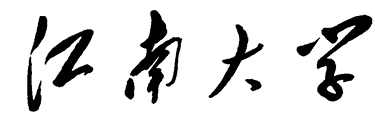 江南大学